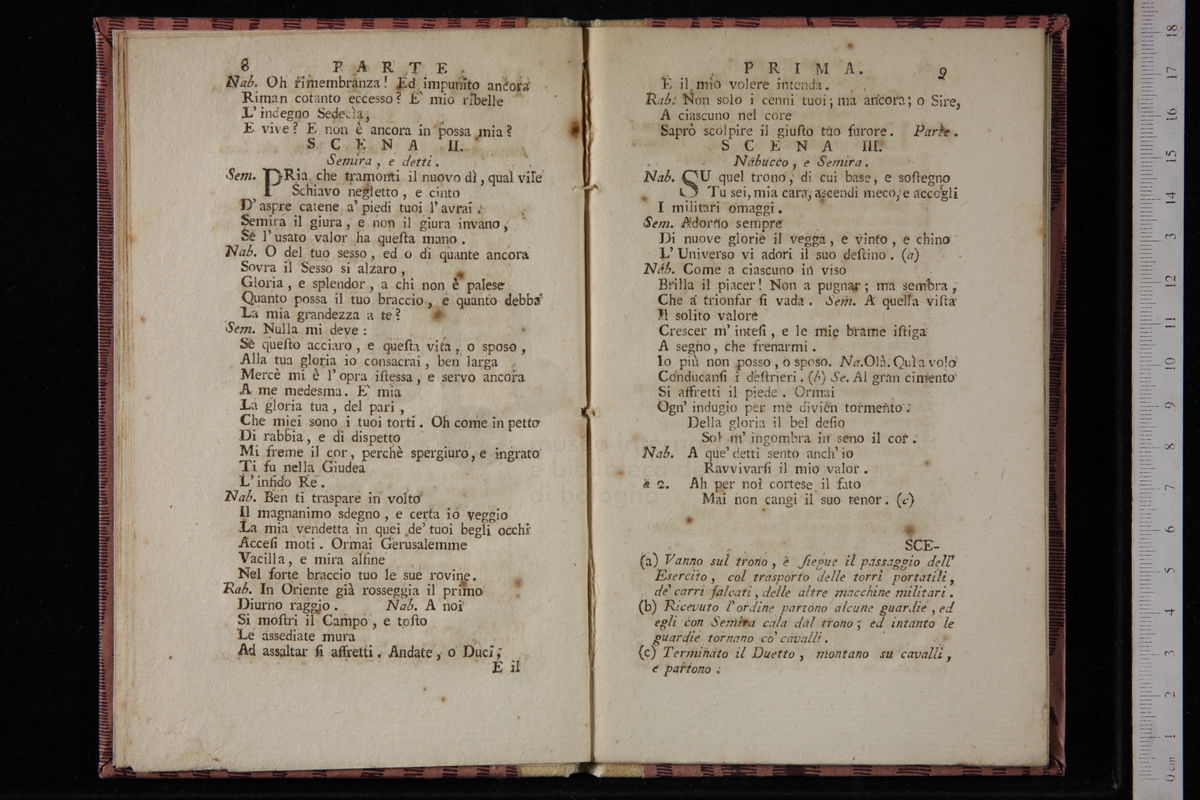 8 PARTE
Nab. Oh rimembranza! Ed impunito ancora
Riman cotanto eccesso? E' mio ribelle
L'indegno Sedecìa,
E vive? E non è ancora in possa mia?
SCENA II.
Semira, e detti.
Sem. PRia che tramonti il nuovo dì, qual vile
Schiavo negletto, e cinto
D'aspre catene a' piedi tuoi l'avrai.
Semira il giura, e non il giura invano,
Se l'usato valor ha queſta mano.
Nab. O del tuo sesso, ed o di quante ancora
Sovra il Sesso si alzaro,
Gloria, e splendor, a chi non è palese
Quanto possa il tuo braccio, e quanto debba
La mia grandezza a te?
Sem. Nulla mi deve:
Se queſto acciaro, e queſta vita, o sposo,
Alla tua gloria io consacrai, ben larga
Mercè mi è l'opra iſtessa, e servo ancora
A me medesma. E' mia
La gloria tua, del pari,
Che miei sono i tuoi torti. Oh come in petto
Di rabbia, e di dispetto
Mi freme il cor, perchè spergiuro, e ingrato
Ti fu nella Giudea
L'infido Re.
Nab. Ben ti traspare in volto
Il magnanimo sdegno, e certa io veggio
La mia vendetta in quei de' tuoi begli occhi
Acceſi moti. Ormai Gerusalemme
Vacilla, e mira alfine
Nel forte braccio tuo le sue rovine.
Rab. In Oriente già rosseggia il primo
Diurno raggio. Nab. A noi
Si moſtri il Campo, e toſto
Le assediate mura
Ad assaltar ſi affretti. Andate, o Duci,
E il
PRIMA. 9
E il mio volere intenda.
Rab. Non solo i cenni tuoi; ma ancora; o Sire,
A ciascuno nel core
Saprò scolpire il giuſto tuo furore. Parte.
SCENA III.
Nabucco, e Semira.
Nab. SU quel trono, di cui base, e soſtegno
Tu sei, mia cara, ascendi meco, e accogli
I militari omaggi.
Sem. Adorno sempre
Di nuove glorie il vegga, e vinto, e chino
L'Universo vi adori il suo deſtino. (a)
Nab. Come a ciascuno in viso
Brilla il piacer! Non a pugnar; ma sembra,
Che a trionfar ſi vada. Sem. A quella viſta
Il solito valore
Crescer m'inteſi, e le mie brame iſtiga
A segno, che frenarmi.
Io più non posso, o sposo. Na.Olà. Quì a volo
Conducanſi i deſtrieri. (b) Se. Al gran cimento
Si affretti il piede. Ormai
Ogn'indugio per me divien tormento.
Della gloria il bel deſio
Sol m'ingombra in seno il cor.
Nab. A que' detti sento anch'io
Ravvivarſi il mio valor.
a 2. Ah per noi cortese il fato
Mai non cangi il suo tenor. (c)
SCE-
(a) Vanno sul trono, e ſiegue il passaggio dell'
Esercito, col trasporto delle torri portatili,
de' carri falcati, delle altre macchine militari.
(b) Ricevuto l'ordine partono alcune guardie, ed
egli con Semira cala dal trono; ed intanto le
guardie tornano co' cavalli.
(c) Terminato il Duetto, montano su cavalli,
e partono.
museo
biblioteca
di bologna
0 cm 1 2 3 4 5 6 7 8 9 10 11 12 13 14 15 16 17 18